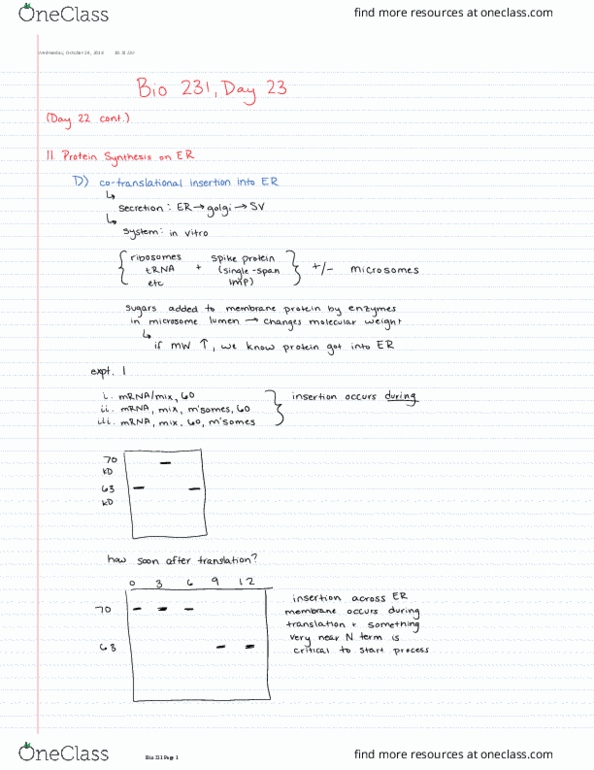 OneClass find more resources at oneclass.com
Bio 231, Day 23
(Day 22 cont.)
II. Protein Synthesis on ER
D) co-translational insertion into ER
↳ secretion: ER→golgi→SV
↳ system: in vitro
ribosomes + spike protein
tRNA (single-span +/- microsomes
etc IMP)
sugars added to membrane protein by enzymes
in microsome lumen → changes molecular weight
↳ if MW ↑, we know protein got into ER
expt. 1
i. mRNA/mix, 60
ii. mRNA, mix, m'somes, 60 insertion occurs during
iii. mRNA, mix, 60, m'somes
70
KD
63
KD
how soon after translation?
0 3 6 9 12
70
63
insertion across ER
membrane occurs during
translation + something
very near N term is
critical to start process
Bio 231 Page 1
OneClass find more resources at oneclass.com